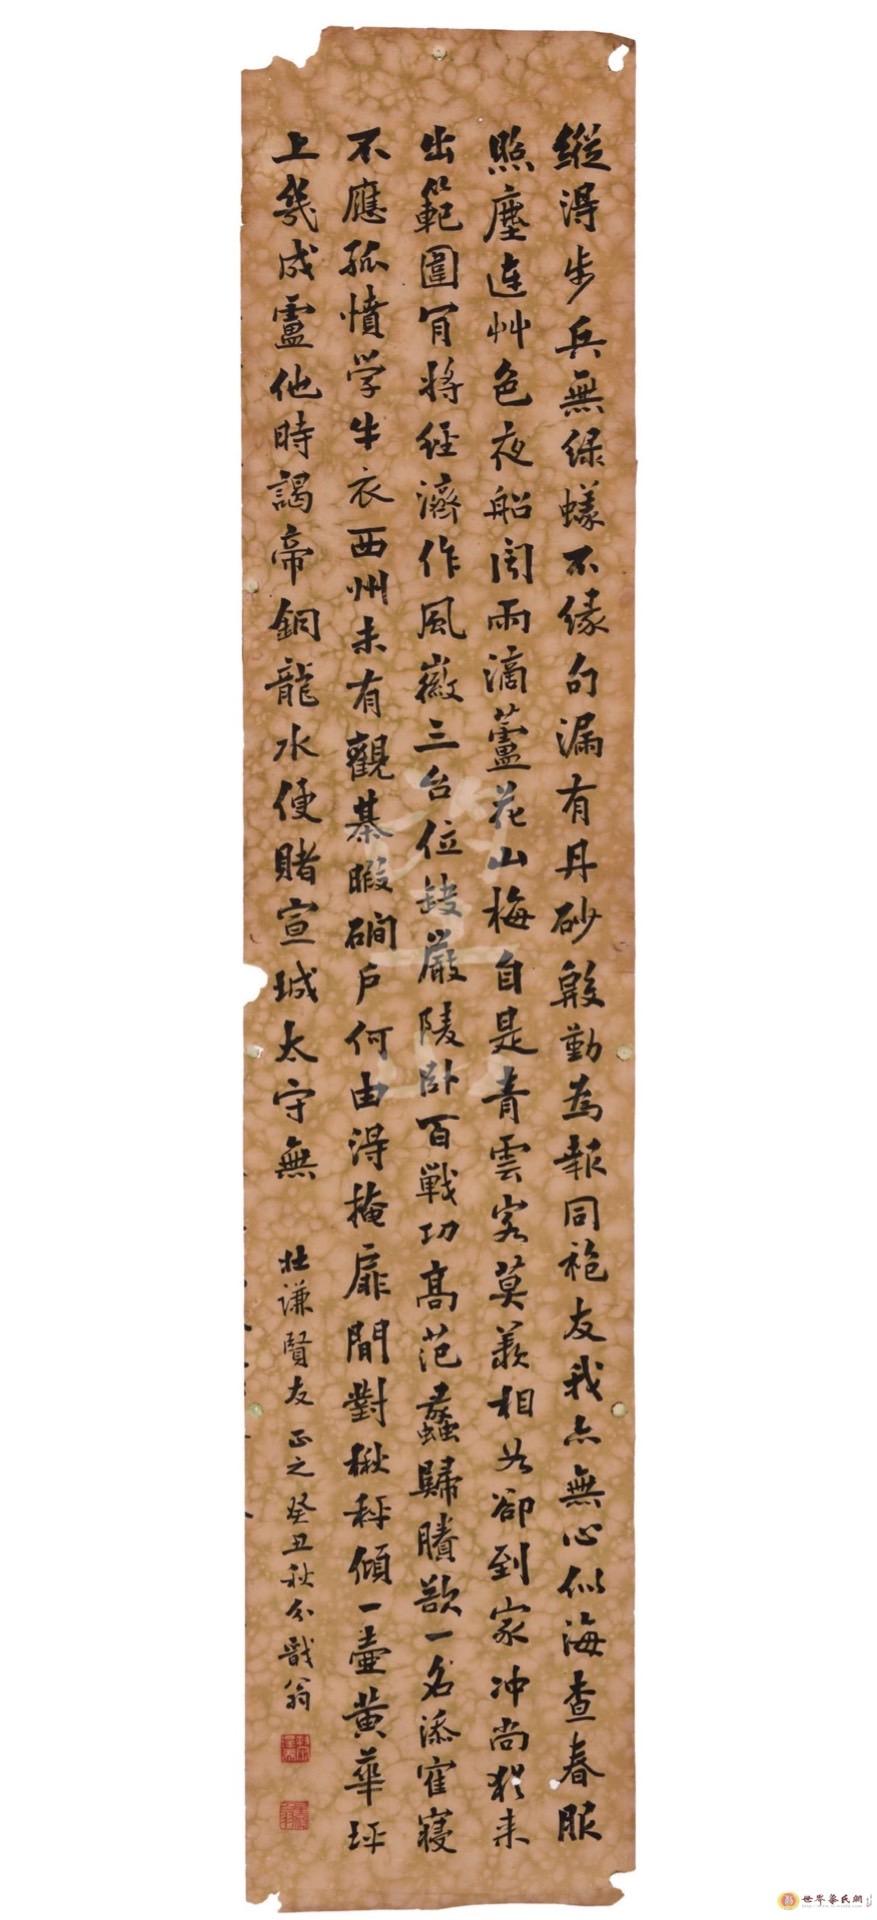 縱得步兵無綠蟻不緣句漏有丹砂殷勤為報同袍友我亦無心似海查春服
照塵連艸色夜船聞雨滴蘆花山梅自是青雲客莫羨相如卻到家冲尚猶來
出範圍肎將經濟作風徽三台位缺嚴陵臥百戰功高范蠡歸賸欲一名添寉寢
不應孤憤學牛衣西州未有觀棊暇磵戶何由得掩扉間對楸枰傾一壺黄華坪
上幾成盧他時謁帝銅龍水便賭宣城太守無
壯謙賢友正之癸丑秋分戲翁